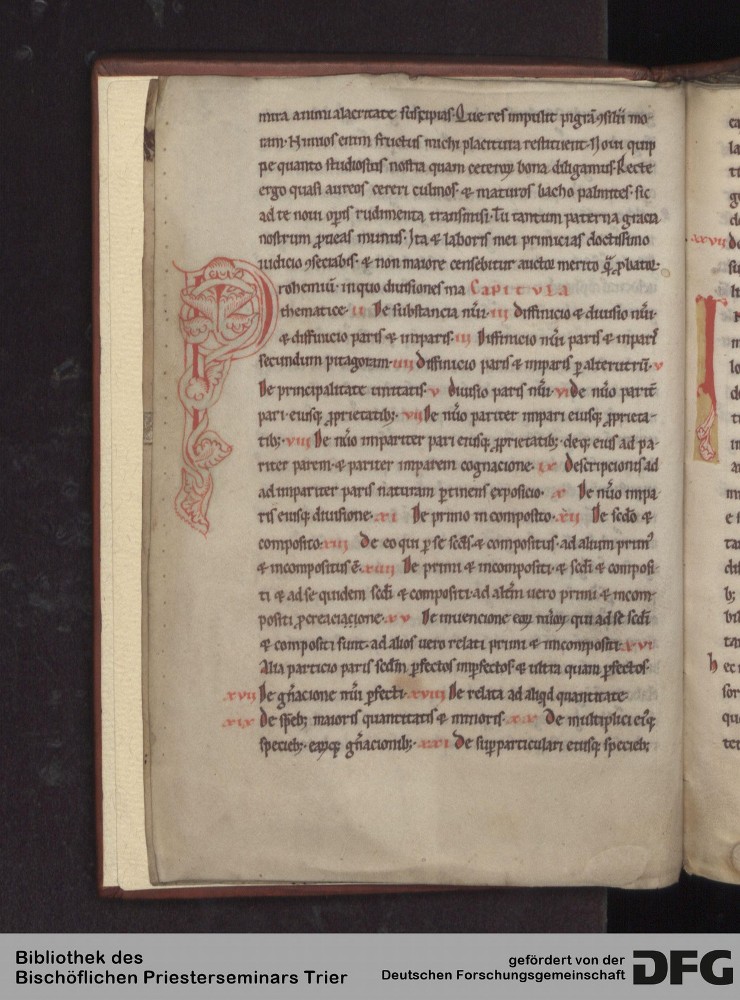 mira animi alacritate suscipias. Que res impulit pigrā ꝯsilii mo-
ram. Minios enim fructus michi placitura restituent. Noui quip
pe quanto studiosius nostra quam ceteroꝝ bona diligamus. Recte
ergo quasi aureos cereri culmos. & maturos bacho palmites. sic
ad te noui opis rudimenta transmisi. Tu tantum paterna gracia
nostrum ꝓueas munus. Ita & laboris mei primicias doctissimo
iudicio ꝯsecrabis. & non maiore censebitur auctor merito q̄ ꝓbator.
Prohemiū. in quo diuisiones ma Capitula
thematice. ii De substancia nūi. iii Diffinicio & diuisio nūi.
& diffinicio paris & imparis. iii Diffinicio nūi paris & inparis
secundum pitagoram. iiii Diffinicio paris & imparis ꝑ alterutrū. v
De principalitate unitatis. v Diuisio paris nūi. vi De nūo parit̄
pari. eiusq; ꝓprietatib;. vii De nūo pariter impari eiusq; ꝓprieta-
tib;. viii De nūo impariter pari eiusq; ꝓprietatib; deq; eius ad pa-
riter parem. & pariter imparem cognacione. ix Descripcionis ad
ad impariter paris naturam ꝑtinens exposicio. x De nūo impa
ris eiusq; diuisione. xi De primo incomposito. xii De secdo &
composito. xiii De eo qui ꝑ se secds & compositus. ad alium prim9
& incompositus ē. xiiii De primi & incompositi. & secdi & composi-
ti & ad se quidem secdi & compositi. ad altm uero primi & incom-
positi ꝓcreaciacione. xv De inuencione eoꝝ nūoꝝ qui ad se secdi
& compositi sunt. ad alios uero relati primi & incompositi. xvi
Alia particio paris secdm ꝑfectos inꝑfectos. & ultra quam ꝑfectos.
xvii De gn̄acione nūi ꝑfecti. xviii De relata ad aliqd quantitate
xix De spēb; maioris quantitatis & minoris. xx De multiplici ei9q;
specieb;. eaꝝq; gn̄acionib;. xxi De suꝑparticulari eiusq; specieb;
xxvii
Bibliothek des
Bischöflichen Priesterseminars Trier
gefördert von der
Deutschen Forschungsgemeinschaft
DFG